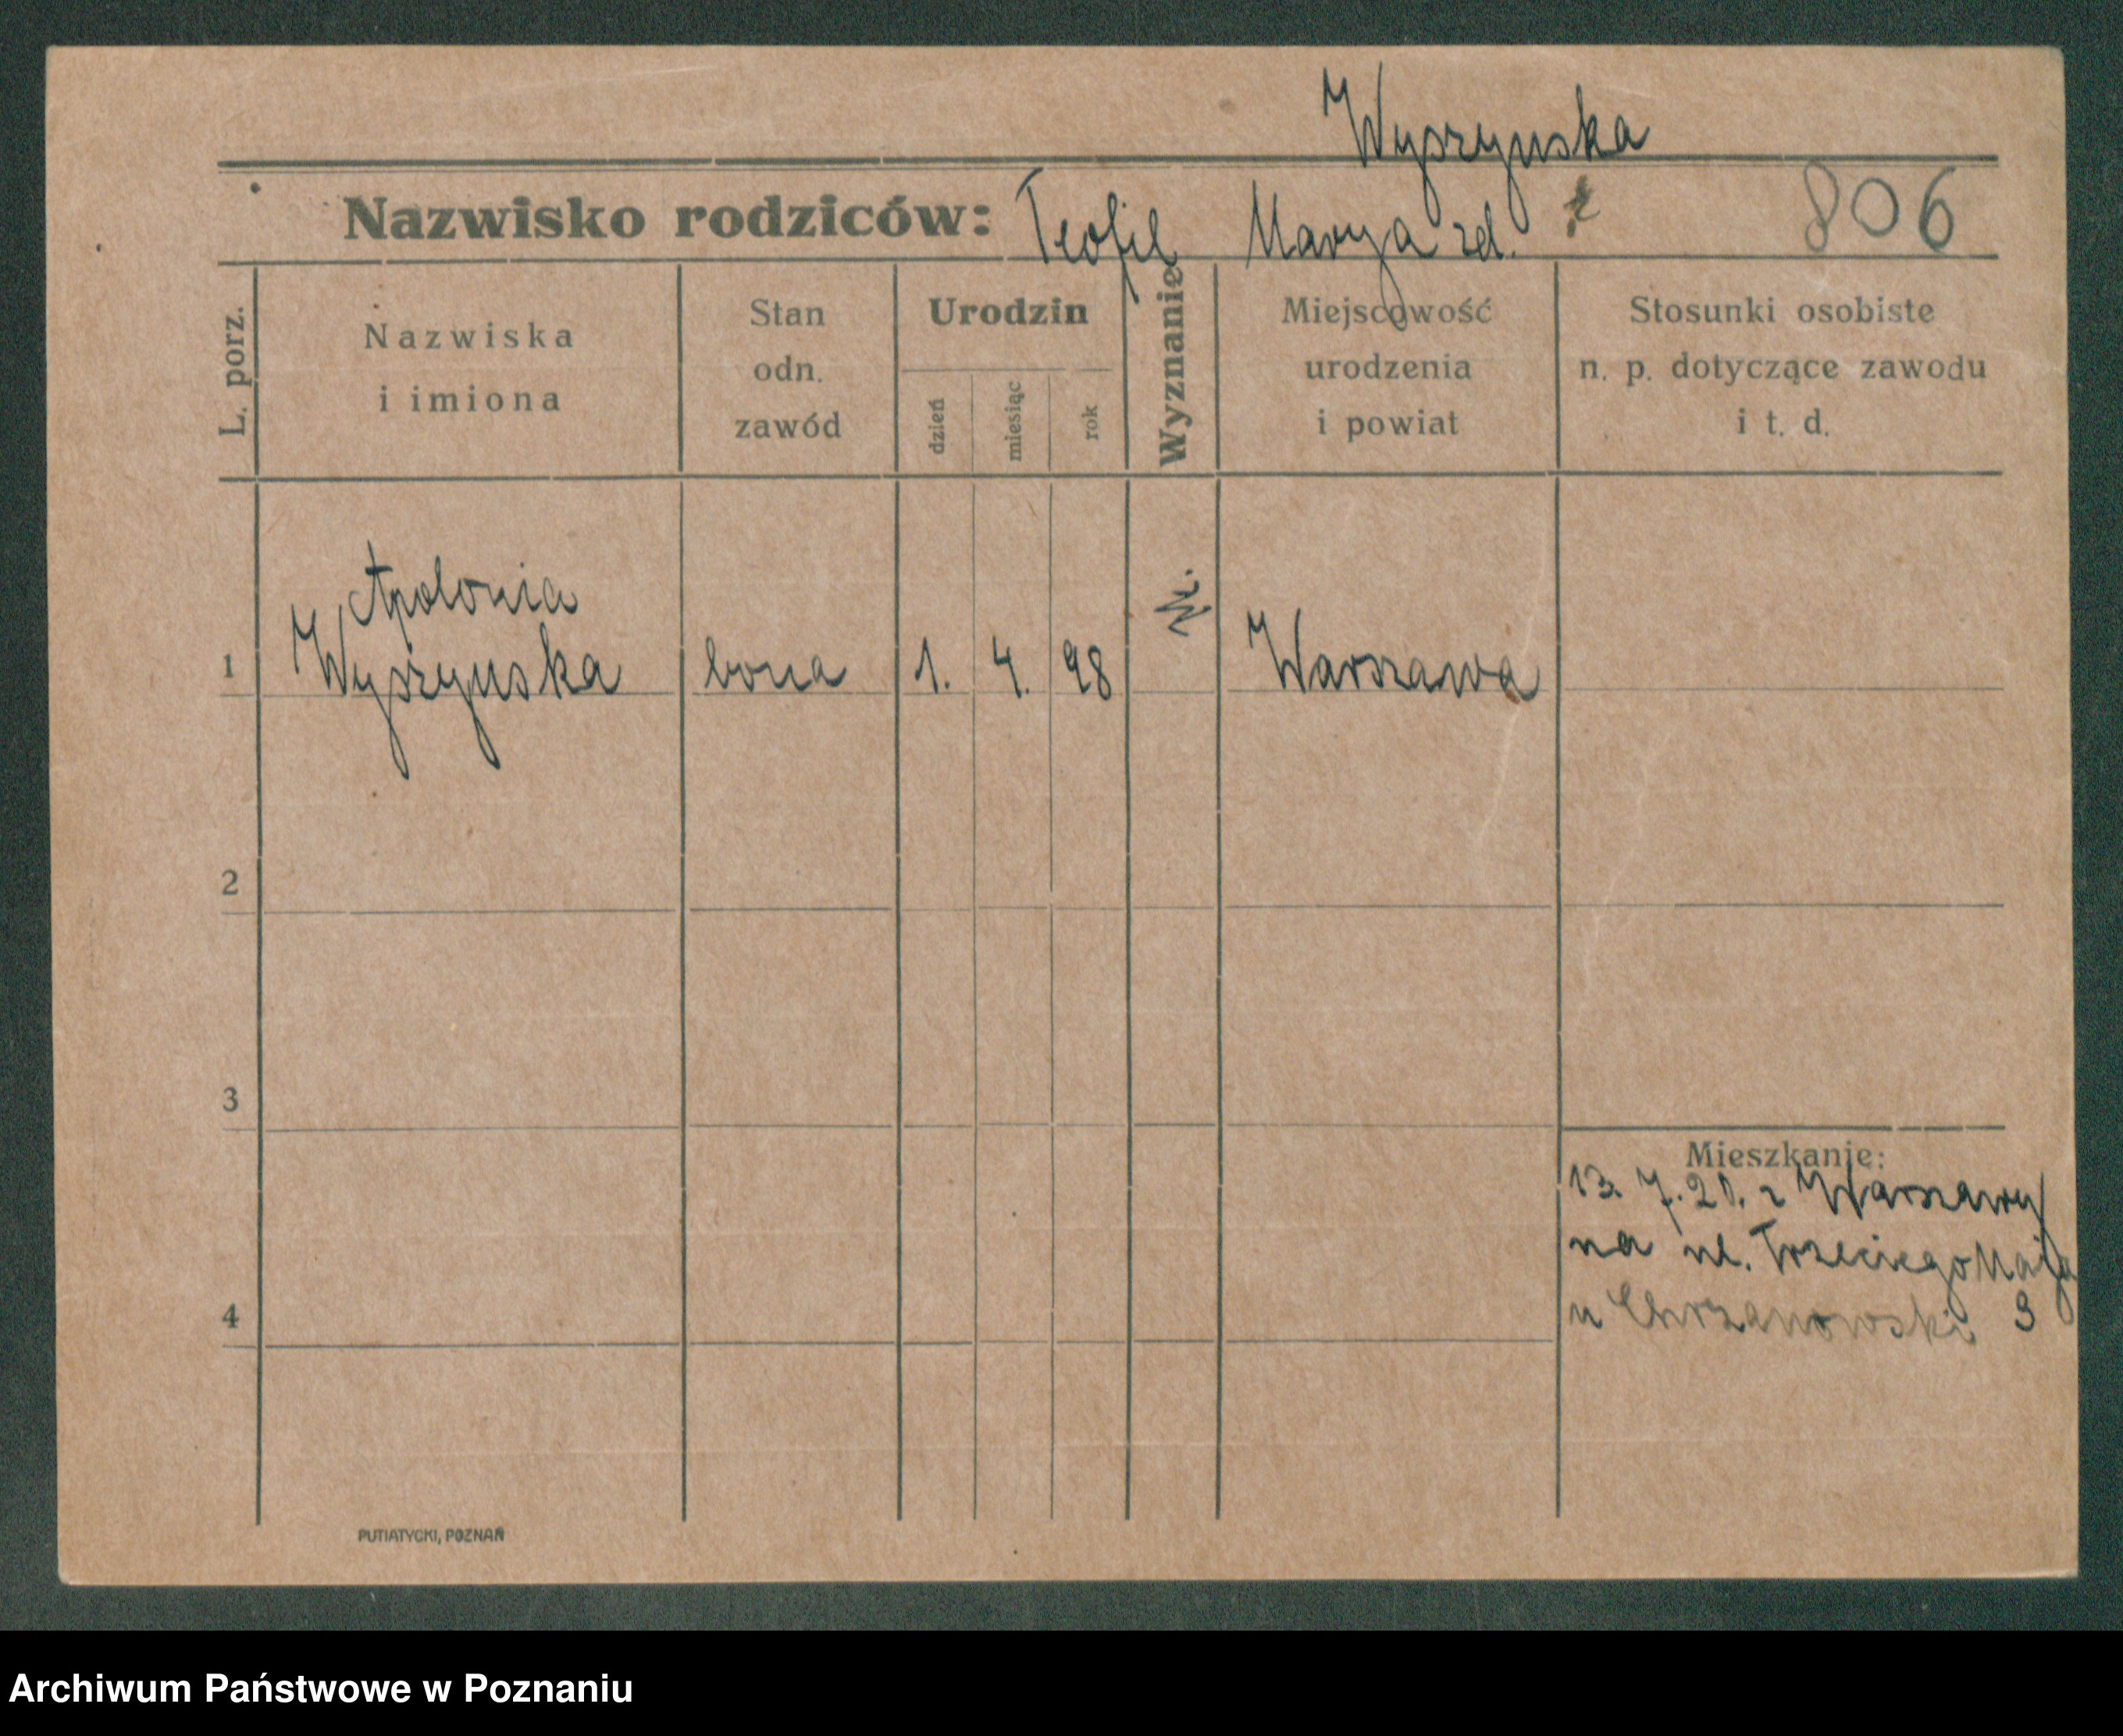 Wyszynska
Nazwisko rodziców: Teofil Marya zd. 806
L. porz.
Nazwiska
i imiona
Stan
odn.
zawód
Urodzin
dzień
miesiąc
rok
Wyznanie
Miejscowość
urodzenia
i powiat
Stosunki osobiste
n. p. dotyczące zawodu
i t. d.
Apolonia
1 Wyszynska bona 1. 4. 98 Warszawa
2
3
Mieszkanie:
13. 7. 20. z Warszawy
na ul. Trzeciego Maja
4
u Chrzanowski 3
PUTIATYCKI, POZNAŃ
Archiwum Państwowe w Poznaniu